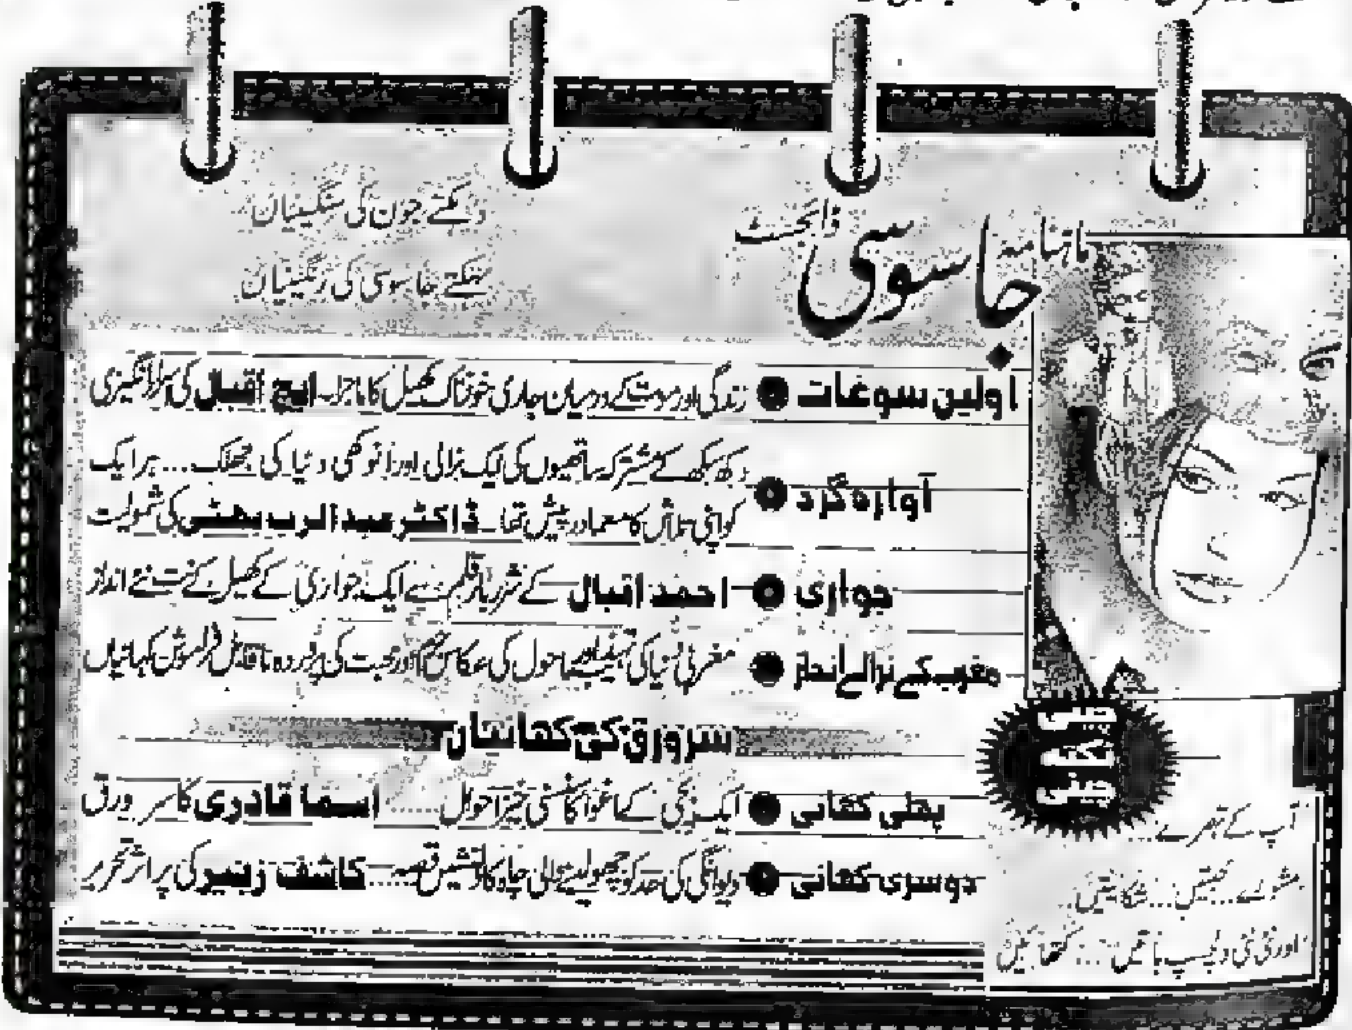 ماہنامہ جاسوسی ڈائجسٹ
دہکتے جون کی سنگینیاں
مہکتے جاسوسی کی رنگینیاں
اولین سوغات ● زندگی اور موت کے درمیان جاری خوفناک کھیل کا ماجرا۔ ایچ اقبال کی سراانگیزی
آوارہ گرد ● دکھ سکھ کے مشترکہ ساتھیوں کی ایک نرالی اور انوکھی دنیا کی جھلک... ہر ایک
کو اپنی تلاش کا معما درپیش تھا۔ ڈاکٹر عبدالرب بھٹی کی شمولیت
جواری ● احمد اقبال کے شرربار قلم سے ایک جواری کے کھیل کے نت نئے انداز
مغرب کے نرالے انداز ● مغربی دنیا کی تہذیب اور ماحول کی عکاس اور محبت کی ناقابل فراموش کہانیاں
سرورق کی کہانیاں
پہلی کہانی ● ایک بچی کے اغوا کا سنسنی خیز احوال..... اسما قادری کا سرورق
دوسری کہانی ● دیوانگی کی حد کو چھو لینے والی چاہ کا دلنشیں قصہ..... کاشف زبیر کی پراثر تحریر
آپ کے تبصرے...
مشورے... محبتیں... شکایتیں..
اور نئی نئی دلچسپ باتیں... کتھائیں